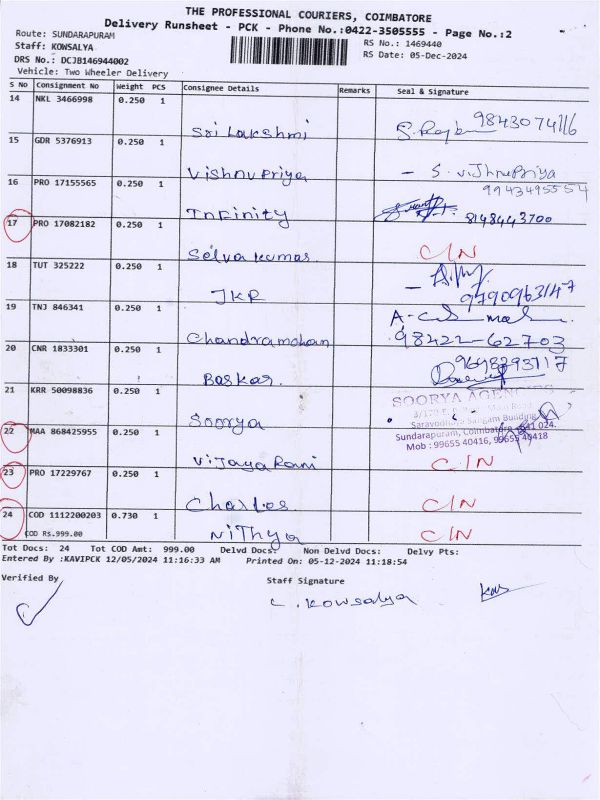 THE PROFESSIONAL COURIERS, COIMBATORE
Delivery Runsheet - PCK - Phone No.:0422-3505555 - Page No.:2
Route: SUNDARAPURAM
RS No.: 1469440
Staff: KOWSALYA
RS Date: 05-Dec-2024
DRS No.: DCJB146944002
Vehicle: Two Wheeler Delivery
S No Consignment No Weight PCS Consignee Details Remarks Seal & Signature
14 NKL 3466998 0.250 1
Sri Lakshmi 9843074116
15 GDR 5376913 0.250 1
Vishnu Priya - S. vijhnupriya
9943495554
16 PRO 17155565 0.250 1
Infinity 8148443700
17 PRO 17082182 0.250 1
Selva kumar C/N
18 TUT 325222 0.250 1
JKR - 9790963147
19 TNJ 846341 0.250 1
Chandramohan 98422-62703
20 CNR 1833301 0.250 1
Baskar 9698293117
21 KRR 50098836 0.250 1
SOORYA AGENCIES
Soorya
Saravodhaya Sangam Building
Sundarapuram, Coimbatore - 641 024.
Mob : 99655 40416, 99655 40418
22 MAA 868425955 0.250 1
Vijaya Rani C/N
23 PRO 17229767 0.250 1
Charles C/N
24 COD 1112200203 0.730 1
COD Rs.999.00 Nithya C/N
Tot Docs: 24 Tot COD Amt: 999.00 Delvd Docs: Non Delvd Docs: Delvy Pts:
Entered By :KAVIPCK 12/05/2024 11:16:33 AM Printed On: 05-12-2024 11:18:54
Verified By Staff Signature
C. Kowsalya